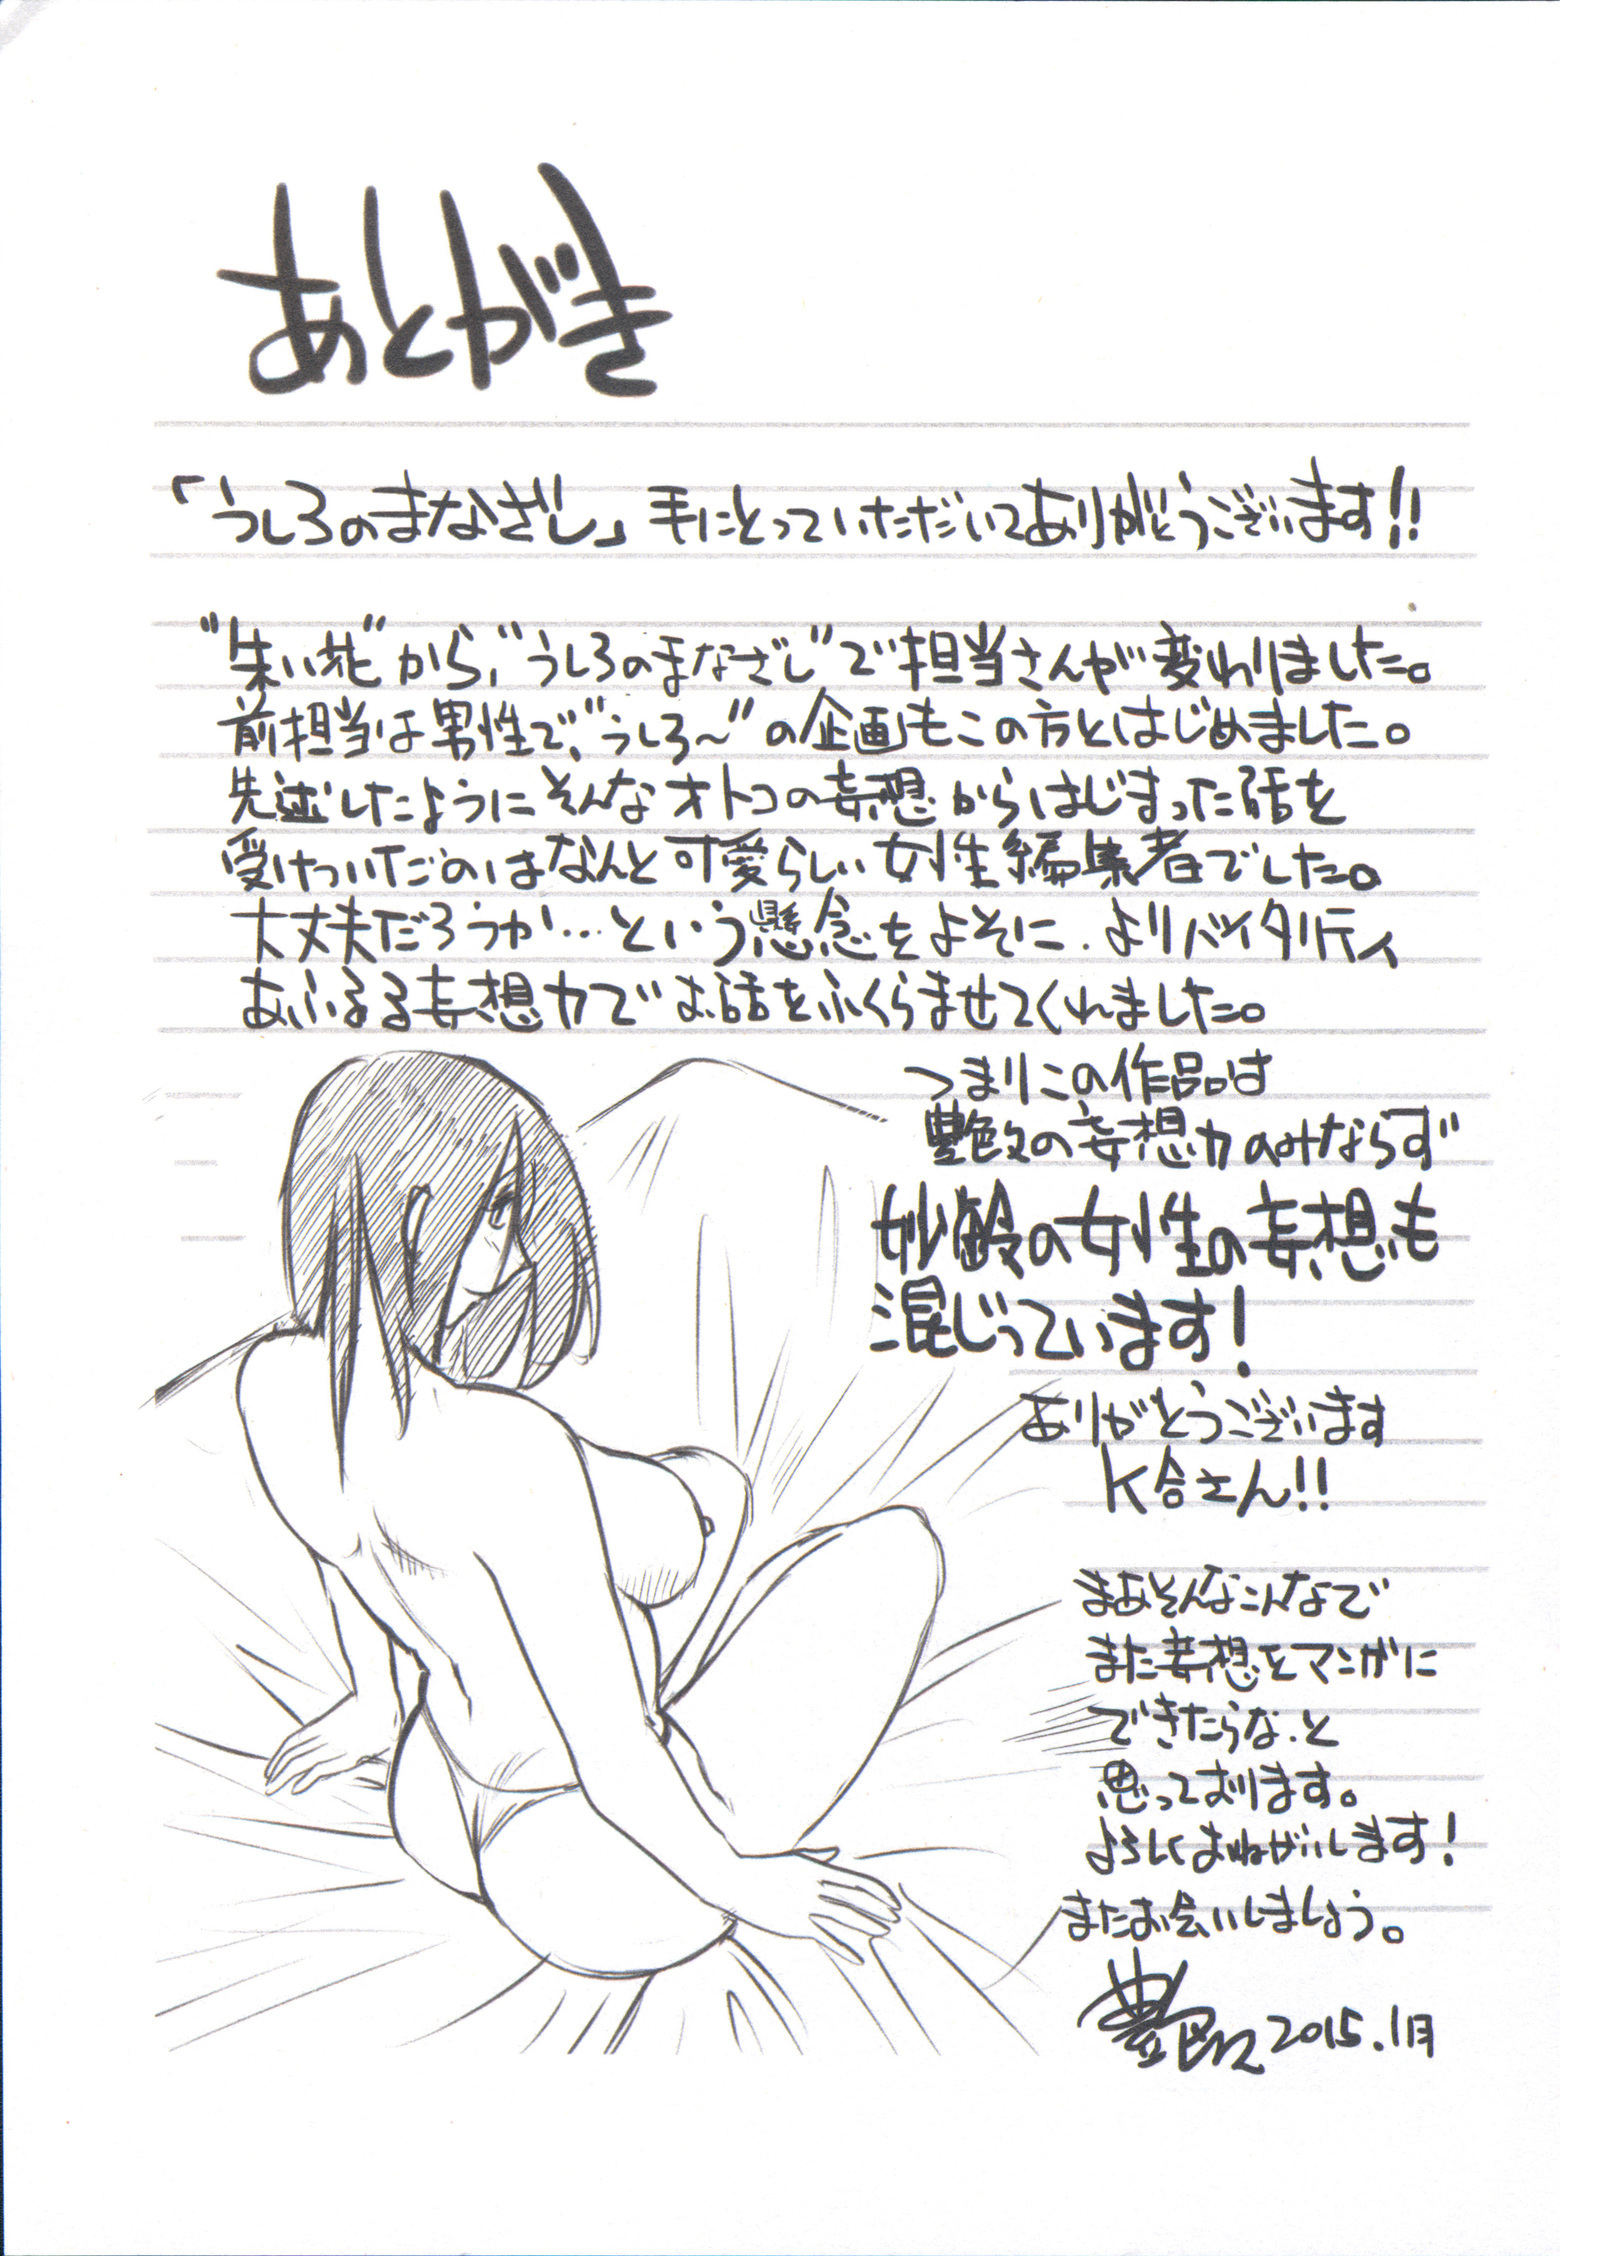 あとがき
「うしろのまなざし」手にとっていただいてありがとうございます!!
"朱い花"から、"うしろのまなざし"で担当さんが変わりました。
前担当は男性で、"うしろ〜"の企画もこの方とはじめました。
先述したようにそんなオトコの妄想からはじまった話を
受けついだのはなんと可愛らしい女性編集者でした。
大丈夫だろうか…という懸念をよそに、よりバイタリティ
あふるる妄想力でお話をふくらませてくれました。
つまりこの作品は
艶々の妄想力のみならず
妙齢の女性の妄想も
混じっています!
ありがとうございます
K合さん!!
まあそんなこんなで
また妄想をマンガに
できたらな、と
思っております。
よろしくおねがいします!
またお会いしましょう。
艶々 2015.1月